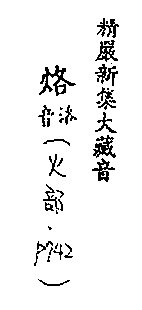 精嚴新集大藏音
烙
音洛
(火部·P742)